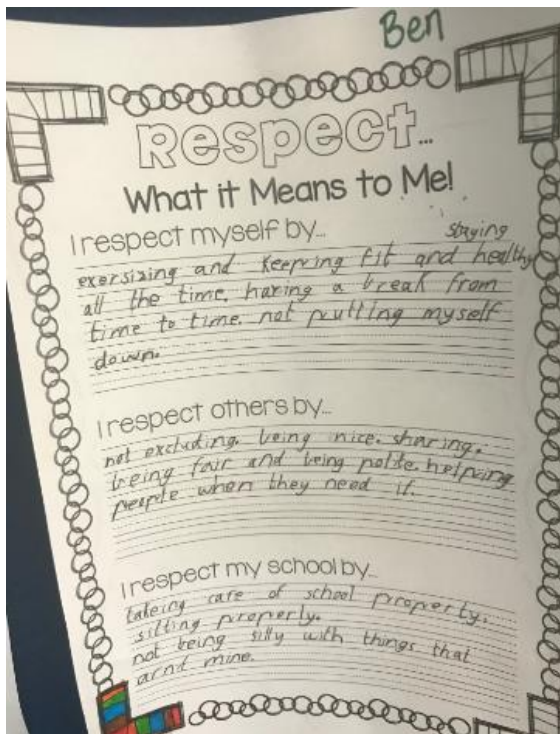 Ben
Respect...
What it Means to Me!
I respect myself by...
staying
exersizing and keeping fit and healthy
all the time. having a break from
time to time. not putting myself
down.
I respect others by...
not excluding. being nice. sharing.
being fair and being polite. helping
people when they need it.
I respect my school by...
takeing care of school property.
sitting properly.
not being silly with things that
arnt mine.